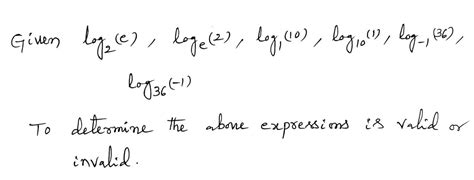 Given log₂(e), logₑ(2), log₁(10), log₁₀(1), log₋₁(36),
log₃₆(-1)
To determine the above expressions is valid or
invalid.